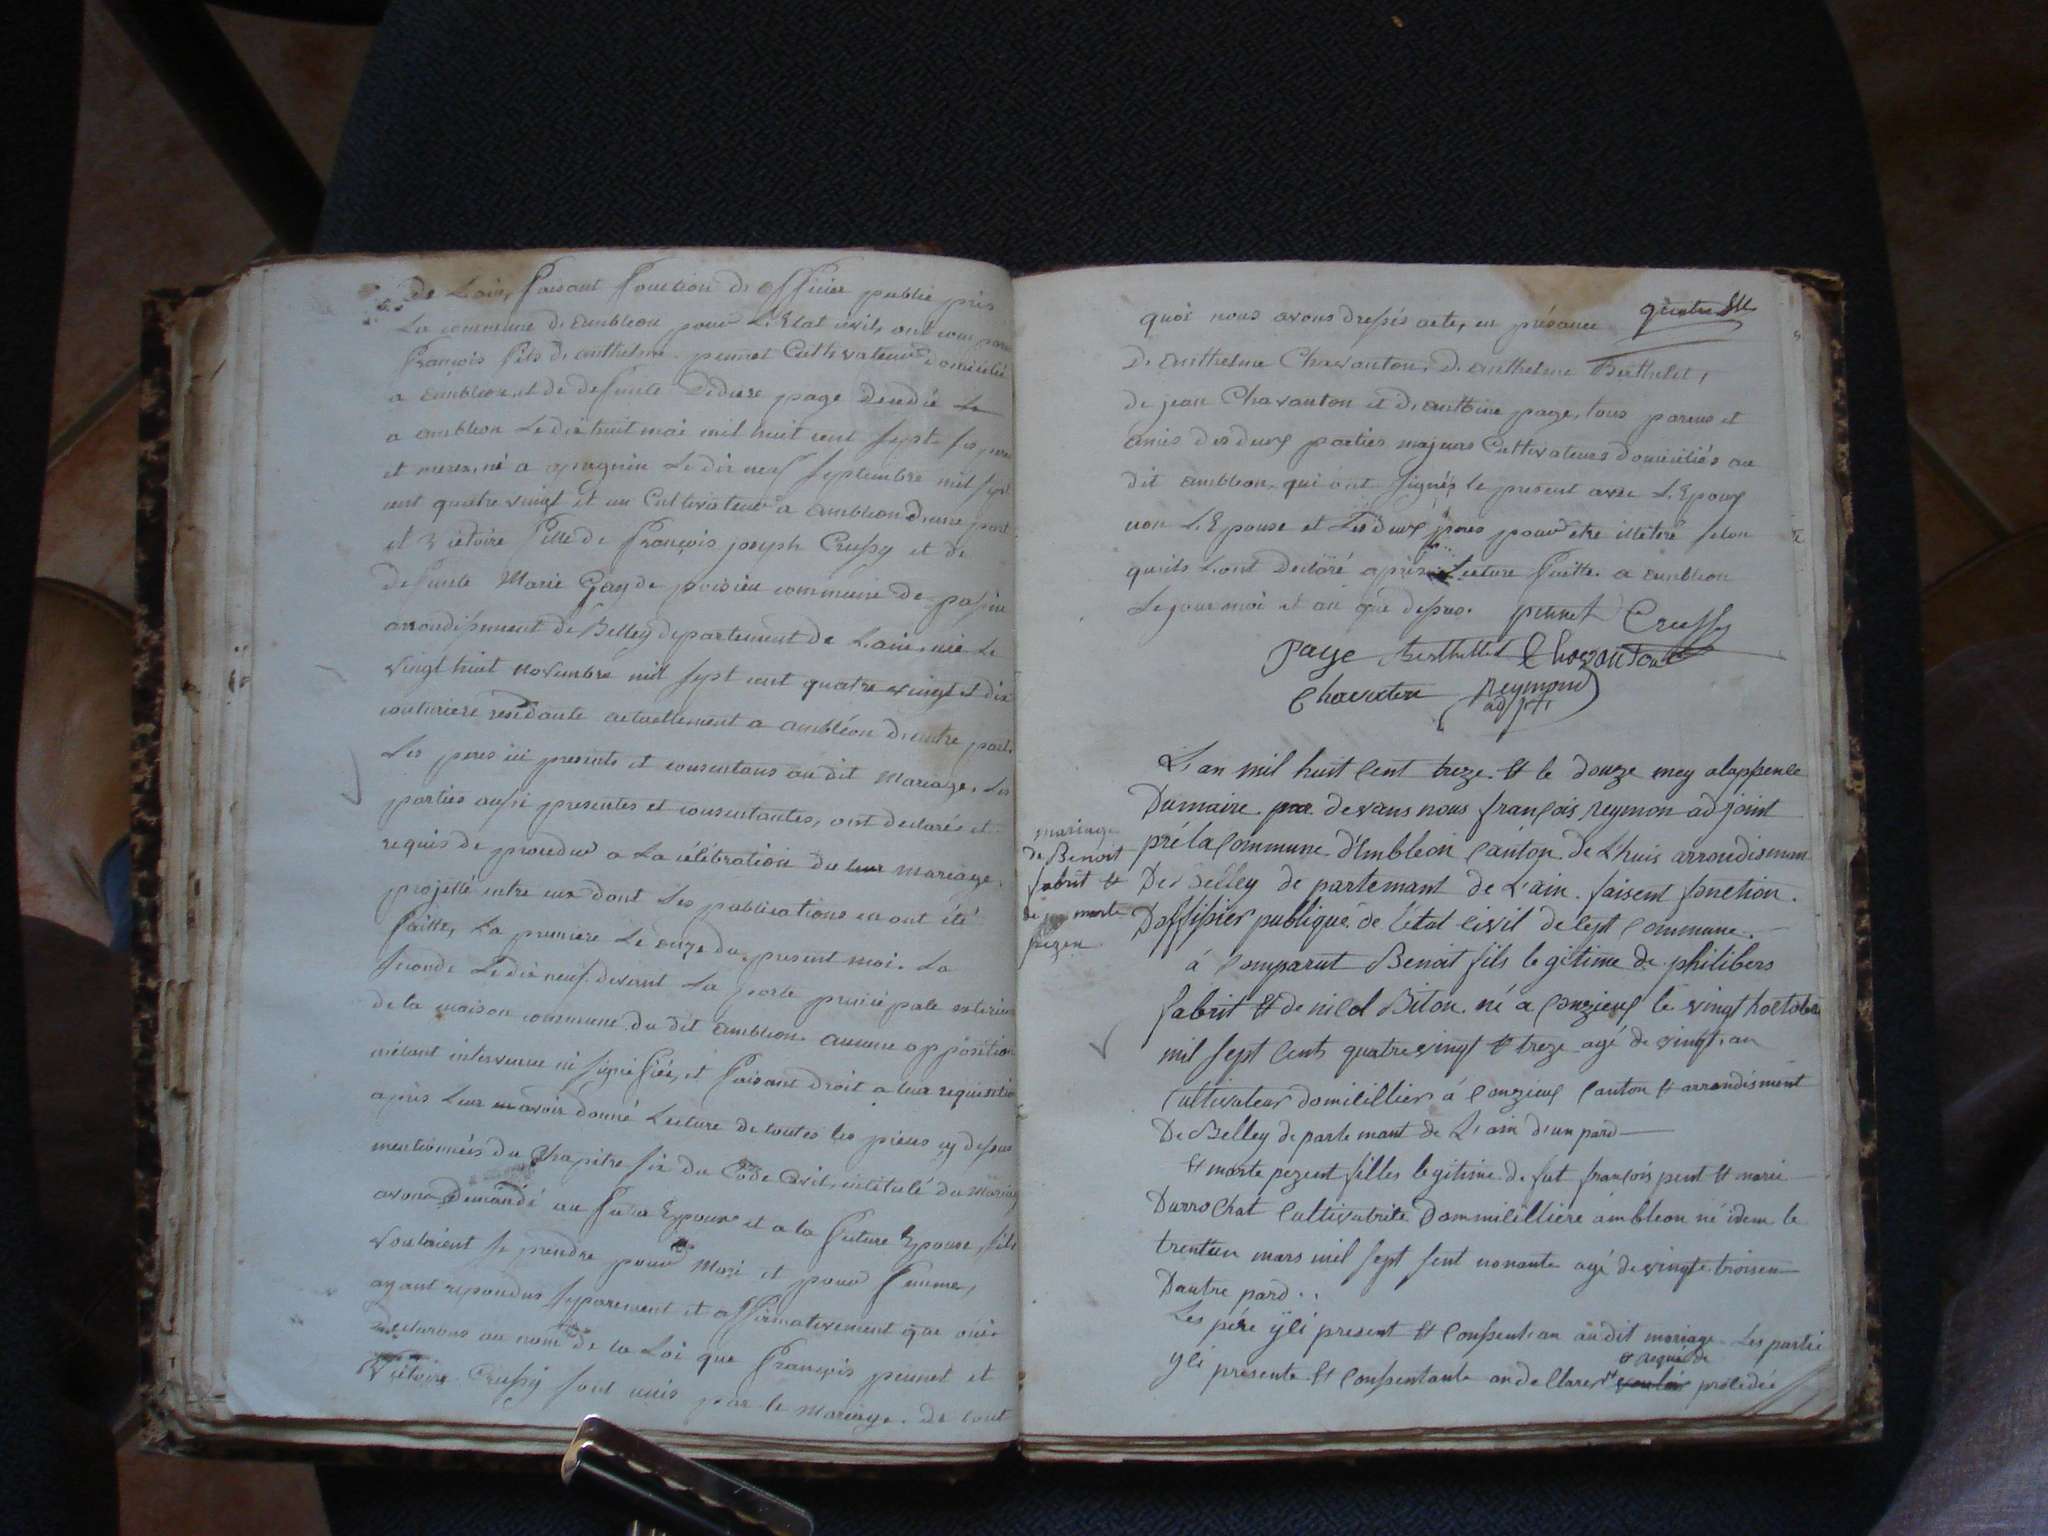 De Lain, faisant fonction d'officier public près
La commune d'ambleon pour L'Etat civil, ont comparu
François fils d'anthelme peunet Cultivateur domicilié
a ambleon, et de defunte Didiere page decedée
a ambleon Le dix huit mai mil huit cent sept. ses pere
et mere, né a Le dix neuf septembre mil sept
cent quatre vingt et un Cultivateur a ambleon D'une part
et Victoire fille de François joseph Crussy et de
defunte Marie Gay de poisieu commune de
arrondissment de Belley departement de Lain, née Le
vingt huit novembre mil sept cent quatre vingt et dix
couturiere residante actuellement a ambléon d'autre part.
Les peres ici presents et consentans au dit Mariage, Les
parties aussi presentes et consentantes, ont declarés et
requis de proceder a La célébration du leur mariage
projetté entre eux dont Les publications en ont été
faitte, La premiere Le onze du present moi. La
seconde Le dix neuf devant La porte principale exterieure
de la maison commune du dit ambleon aucune opposition
n'etant intervenue ni signifiée, et faisant droit a leur requisition
après Leur avoir donné Lecture de toutes les pieces cy dessus
mentionnées du Chapitre six du Code Civil, intitulé du Mariage
avons demandé au futur Epoux et a la future Epouse, s'ils
vouloient se prendre pour Mari et pour femme,
ayant repondus separement et affirmativement que oui
Declarons au nom de la Loi que François peunet et
Victoire Crussy sont unis par le Mariage. de tout
quoi nous avons dressés acte, en présance
D'anthelme Chavanton, D'anthelme Berthelet,
de jean Chavanton et d'anttoine page, tous parens et
amis des deux parties majeurs Cultivateurs domiciliés au
dit ambleon, qui ont signés le present avec L'Epoux
non L'Epouse et Les deux peres pour etre illeteré selon
qu'ils L'ont declaré après Lecture faitte. a ambleon
Le jour moi et an que dessus. peunet Crussy
Page Berthellet Chavanton
Chavanton Reymond
adjt
L'an mil huit Cent treze. et le douze mey alappence
Dumaire. par devans nous françois reymon adjoint
pré la Commune d'Embleon Canton de L'huis arrondisman
De Belley de partemant de L'ain. faisent fonction.
D'offisier publique de l'état Civil de Cept Commune.
mariage
de Benoit
fabrit et
de marte
pezen
á Comparut Benoit fils legitime de philibers
fabrit et de nicol Biton. né a Conzieux le vingt hoctobre
mil sept Cents quatrevingt et treze agé de vingt. an
Cultivateur domicillier á Conzieux Canton et arrondisment
De Belley de parte mant de L'ain d'un pard
et marte pezent filles legitime de fut françois pent et marie
Durrochat Cultivatrite Dommicilliere ambleon né idem le
trentun mars mil sept sent nonante agé de vingte troisen
Dautre pard..
Les pére yci present et Conssent. an au dit mariage Les partie
yci presente et Conssentante on dellarer et requi de procedée